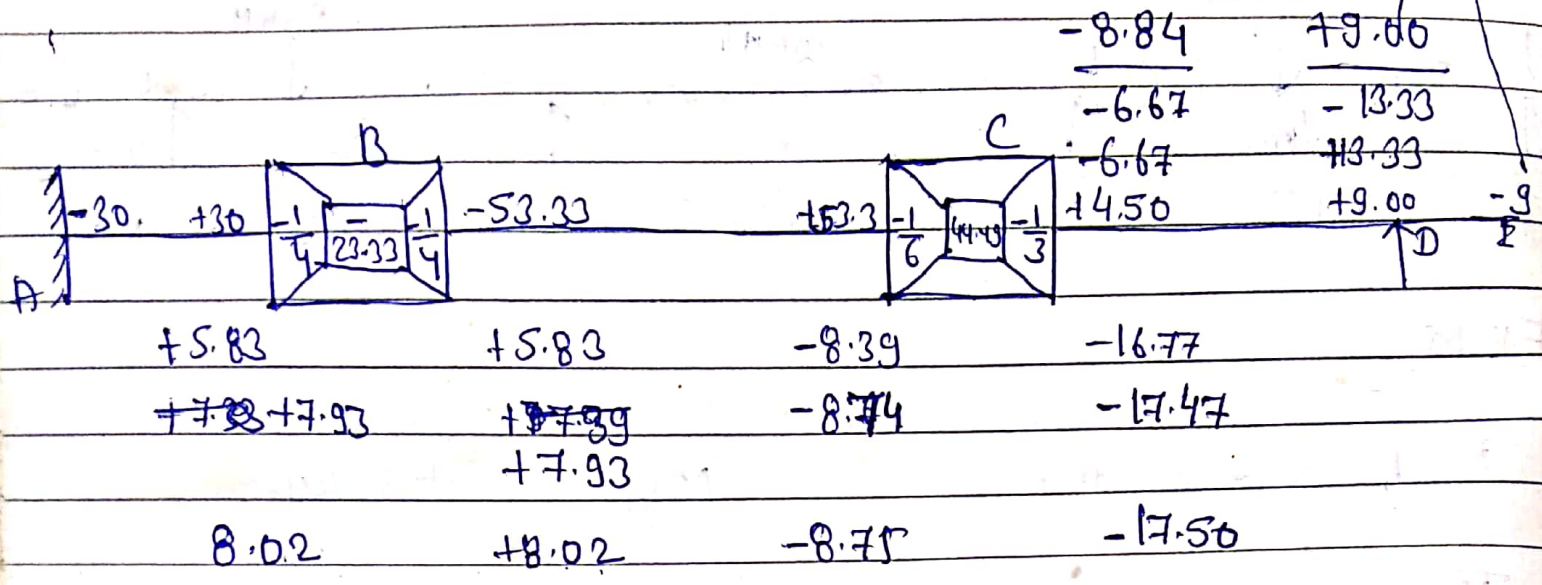 -8.84 +9.00
-6.67 -13.33
B C -6.67 +13.33
-30. +30 -1/4 -23.33 -1/4 -53.33 +53.3 -1/6 44.49 -1/3 +4.50 +9.00 -9
A D E
+5.83 +5.83 -8.39 -16.77
+7.93 -8.74 -17.47
+7.93
8.02 +8.02 -8.75 -17.50